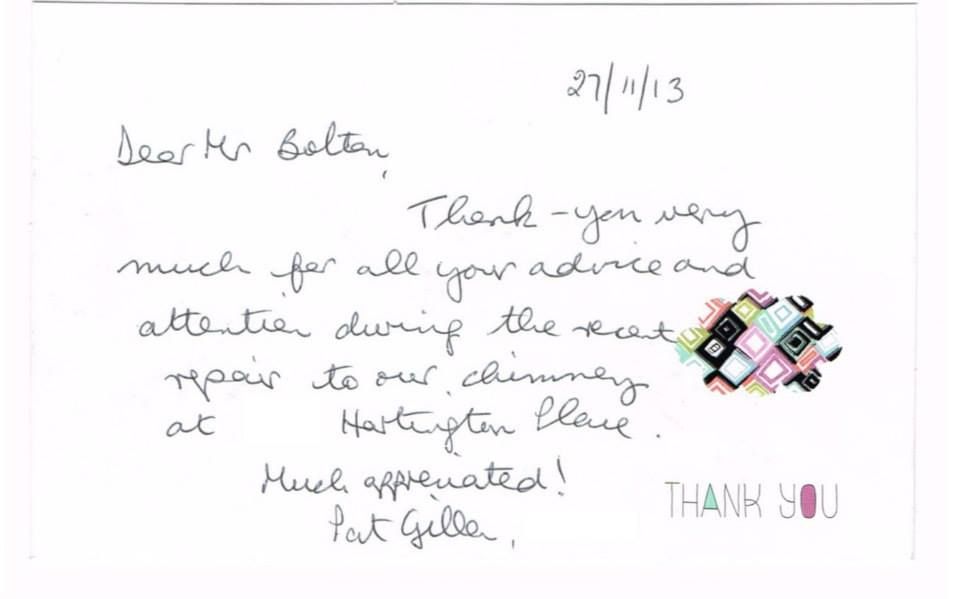 27/11/13
Dear Mr Bolton,
Thank-you very
much for all your advice and
attention during the recent
repair to our chimney
at Hartington Place.
Much appreciated!
Pat Giller,
THANK YOU